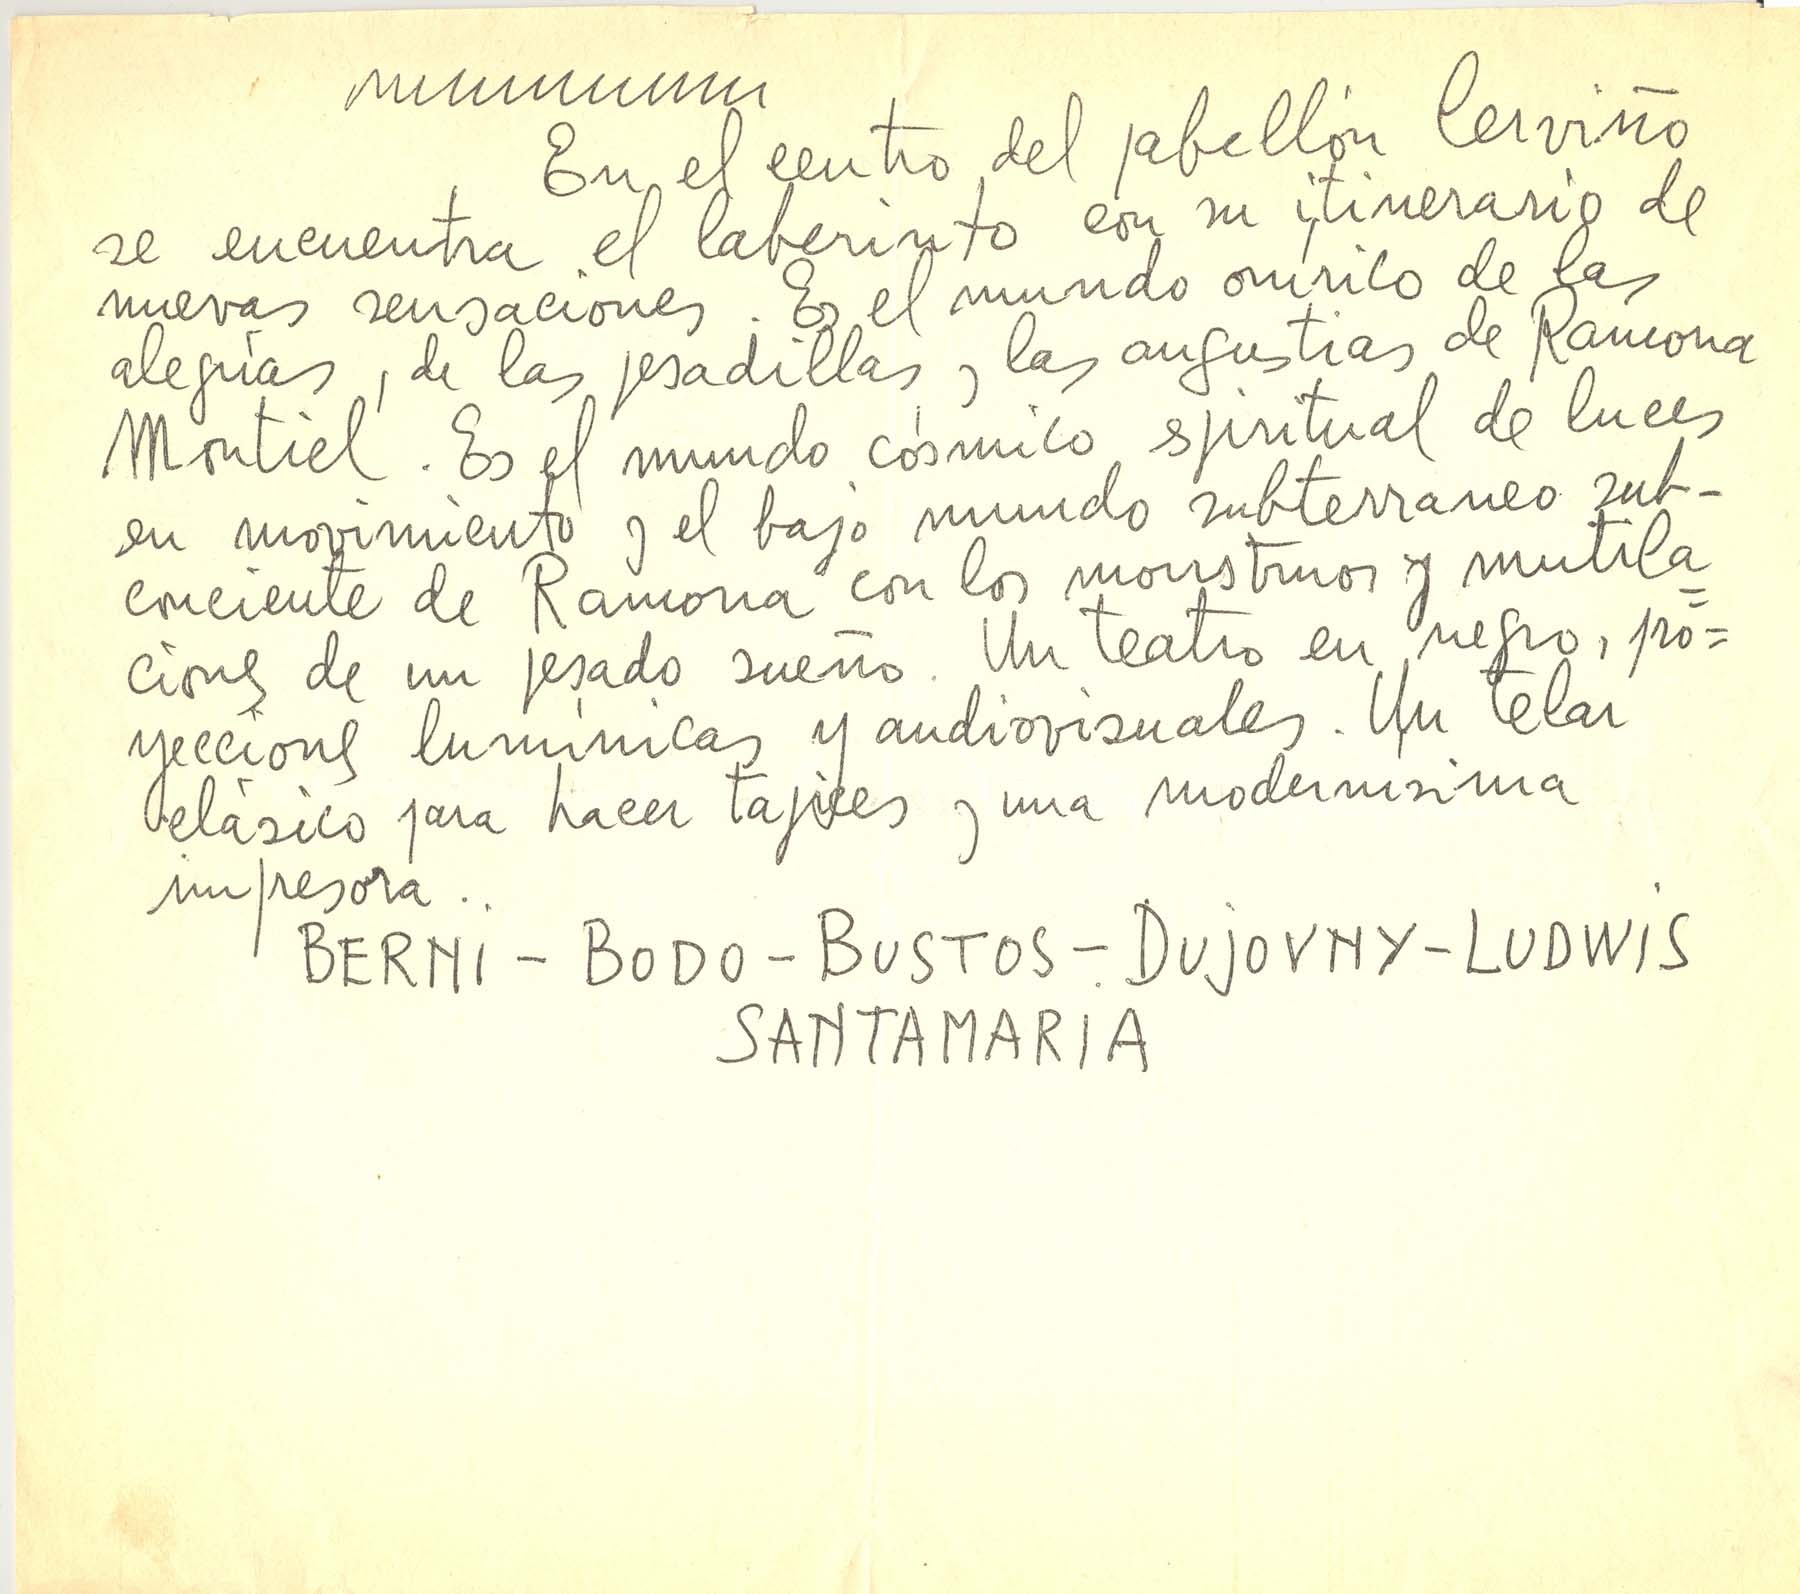 En el centro del pabellón Cerviño
se encuentra el laberinto con su itinerario de
nuevas sensaciones. Es el mundo onírico de las
alegrías, de las pesadillas y las angustias de Ramona
Montiel. Es el mundo cósmico spiritual de luces
en movimiento y el bajo mundo subterraneo sub-
conciente de Ramona con los monstruos y mutila=
ciones de un pesado sueño. Un teatro en negro, pro=
yecciones lumínicas y audiovisuales. Un telar
clásico para hacer tapices y una modernisima
impresora..
BERNI - BODO - BUSTOS - DUJOVNY - LUDWIS
SANTAMARIA